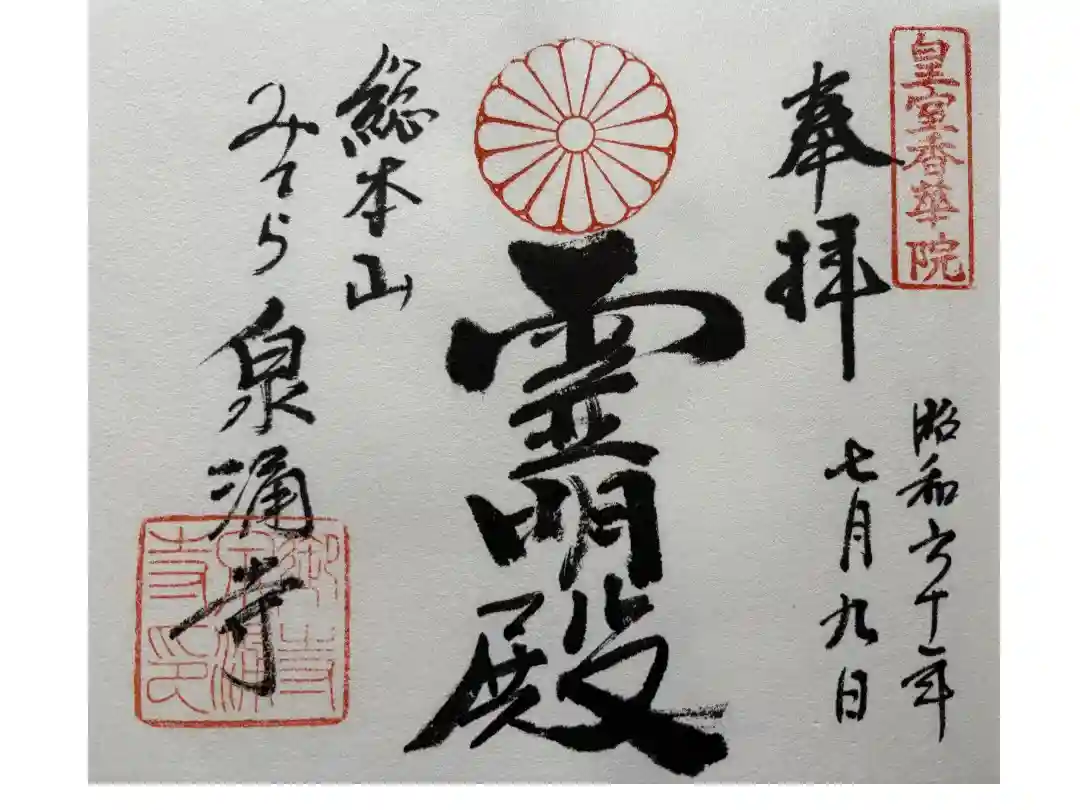 皇室香華院
奉拝
昭和六十一年
七月九日
霊明殿
総本山
みてら 泉涌寺
御寺泉涌寺印